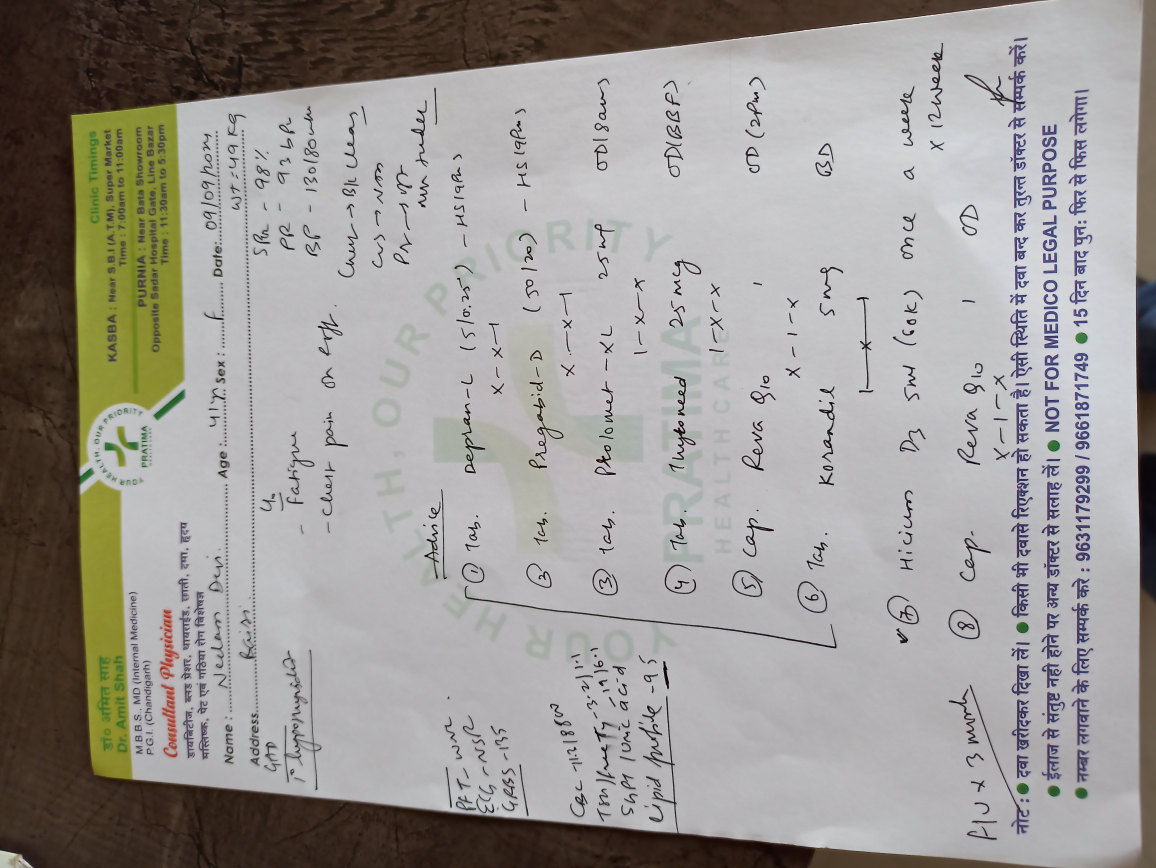 डॉ० अमित साह
Dr. Amit Shah
M.B.B.S., MD (Internal Medicine)
P.G.I. (Chandigarh)
Consultant Physician
डायबिटीज, ब्लड प्रेशर, थायराईड, छाती, दमा, हृदय
मस्तिष्क, पेट एवं गठिया रोग विशेषज्ञ
YOUR HEALTH, OUR PRIORITY
PRATIMA
Clinic Timings
KASBA : Near S.B.I (A.T.M), Super Market
Time : 7:00am to 11:00am
PURNIA : Near Bata Showroom
Opposite Sadar Hospital Gate, Line Bazar
Time : 11:30am to 5:30pm
Name : Neelam Devi Age : 41 Sex : F Date: 09/09/2024
Address
GAD
WT = 49 Kg
SPO2 - 98%
PR - 93 bpm
BP - 130/80
Chest → B/L clear
- Fatigue
- chest pain on
Advice
PFT - WNL
ECG - NSR
GRBS - 135
CBC - 11.2/8800
Lipid profile - 95
① Tab. Depran-L (5/0.25) - HS (9pm)
x - x - 1
② Tab. Pregabid-D (50/20) - HS (9pm)
x - x - 1
③ Tab. Ptolomet-XL 25mg OD (8am)
1 - x - x
④ Tab. Thyroneed 25mcg OD (BBF)
1 - x - x
⑤ Cap. Reva Q10 1 OD (2pm)
x - 1 - x
⑥ Tab. Korandil 5mg BD
1 - x - 1
⑦ Hicium D3 5ml (60K) once a week
x 12 week
⑧ Cap. Reva Q10 1 OD
x - 1 - x
F/U x 3 month
YOUR HEALTH, OUR PRIORITY
PRATIMA
HEALTH CARE
नोट : ● दवा खरीदकर दिखा लें। ● किसी भी दवासे रिएक्शन हो सकता है। ऐसी स्थिति में दवा बन्द कर तुरन्त डॉक्टर से सम्पर्क करें।
● ईलाज से संतुष्ट नही होने पर अन्य डॉक्टर से सलाह लें। ● NOT FOR MEDICO LEGAL PURPOSE
● नम्बर लगवाने के लिए सम्पर्क करे : 9631179299 / 9661871749 ● 15 दिन बाद पुन: फिर से फिस लगेगा।